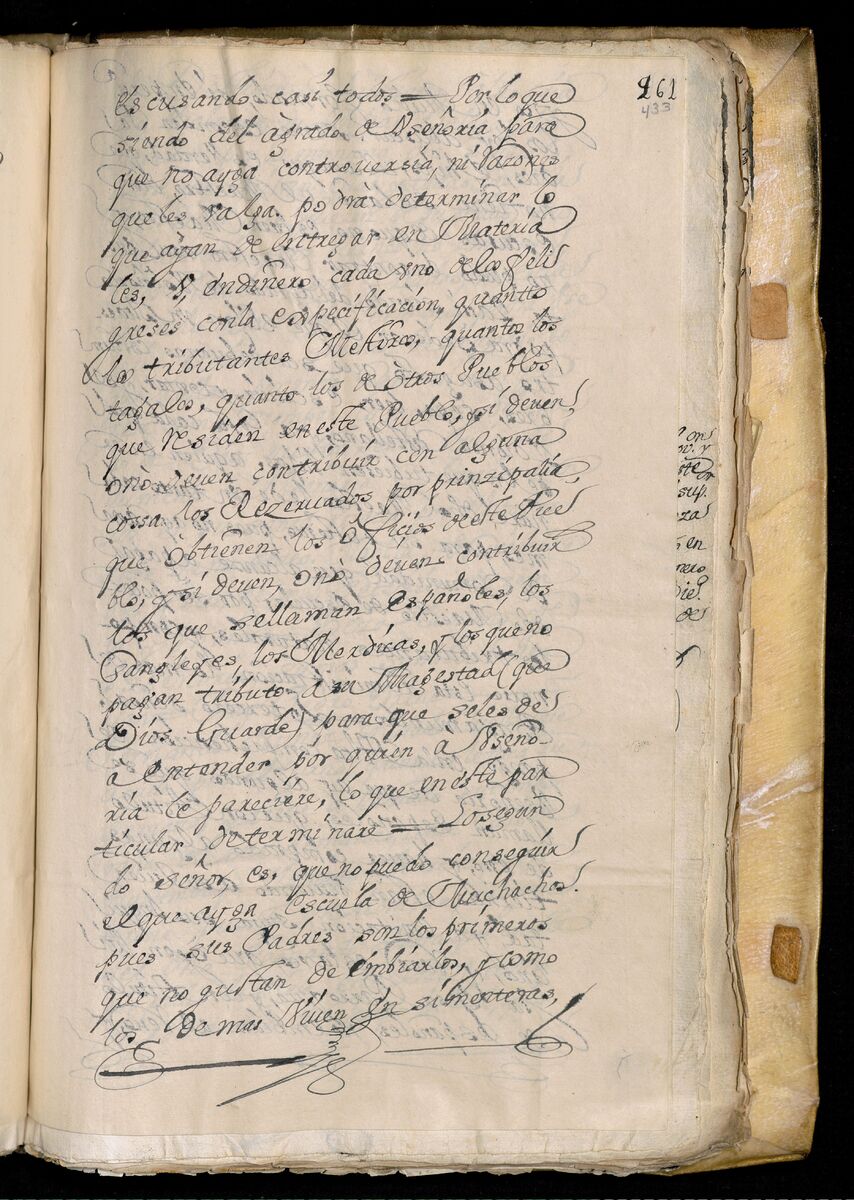 161
433
escusando casi todos = Por lo que
siendo del agrado de Vseñoria para
que no ayga controversia, ni razones
que les valga podrà determinar lo
que ayan de entregar en Materia
les, y, en dinero cada vno de los feli
greses con la especificacion, quantto
los tributantes Mestisos, quanto los
tagalos, quanto los de otros Pueblos
que residen en este Pueblo, y si deven,
o nò deven contribuir con alguna
cossa los Rezervados por prinzipalia,
que obtienen los òficios de este Pue
blo, y si deven, o nò deven contribuir
los que se llaman Españoles, los
Sangleyes, los Merdicas, y los que no
pagan tributo a su Magestad (que
Dios Guarde) para que se les dè
à entender por quien à Vseño-
ria le pareciere, lo que en este par
ticular determinare = Lo segun
do señor, es, que no puedo conseguir
el que ayga Escuela de Muchachos.
pues sus Padres son los primeros
que no gustan de embiarlos, y como
los demas viven en simenteras,